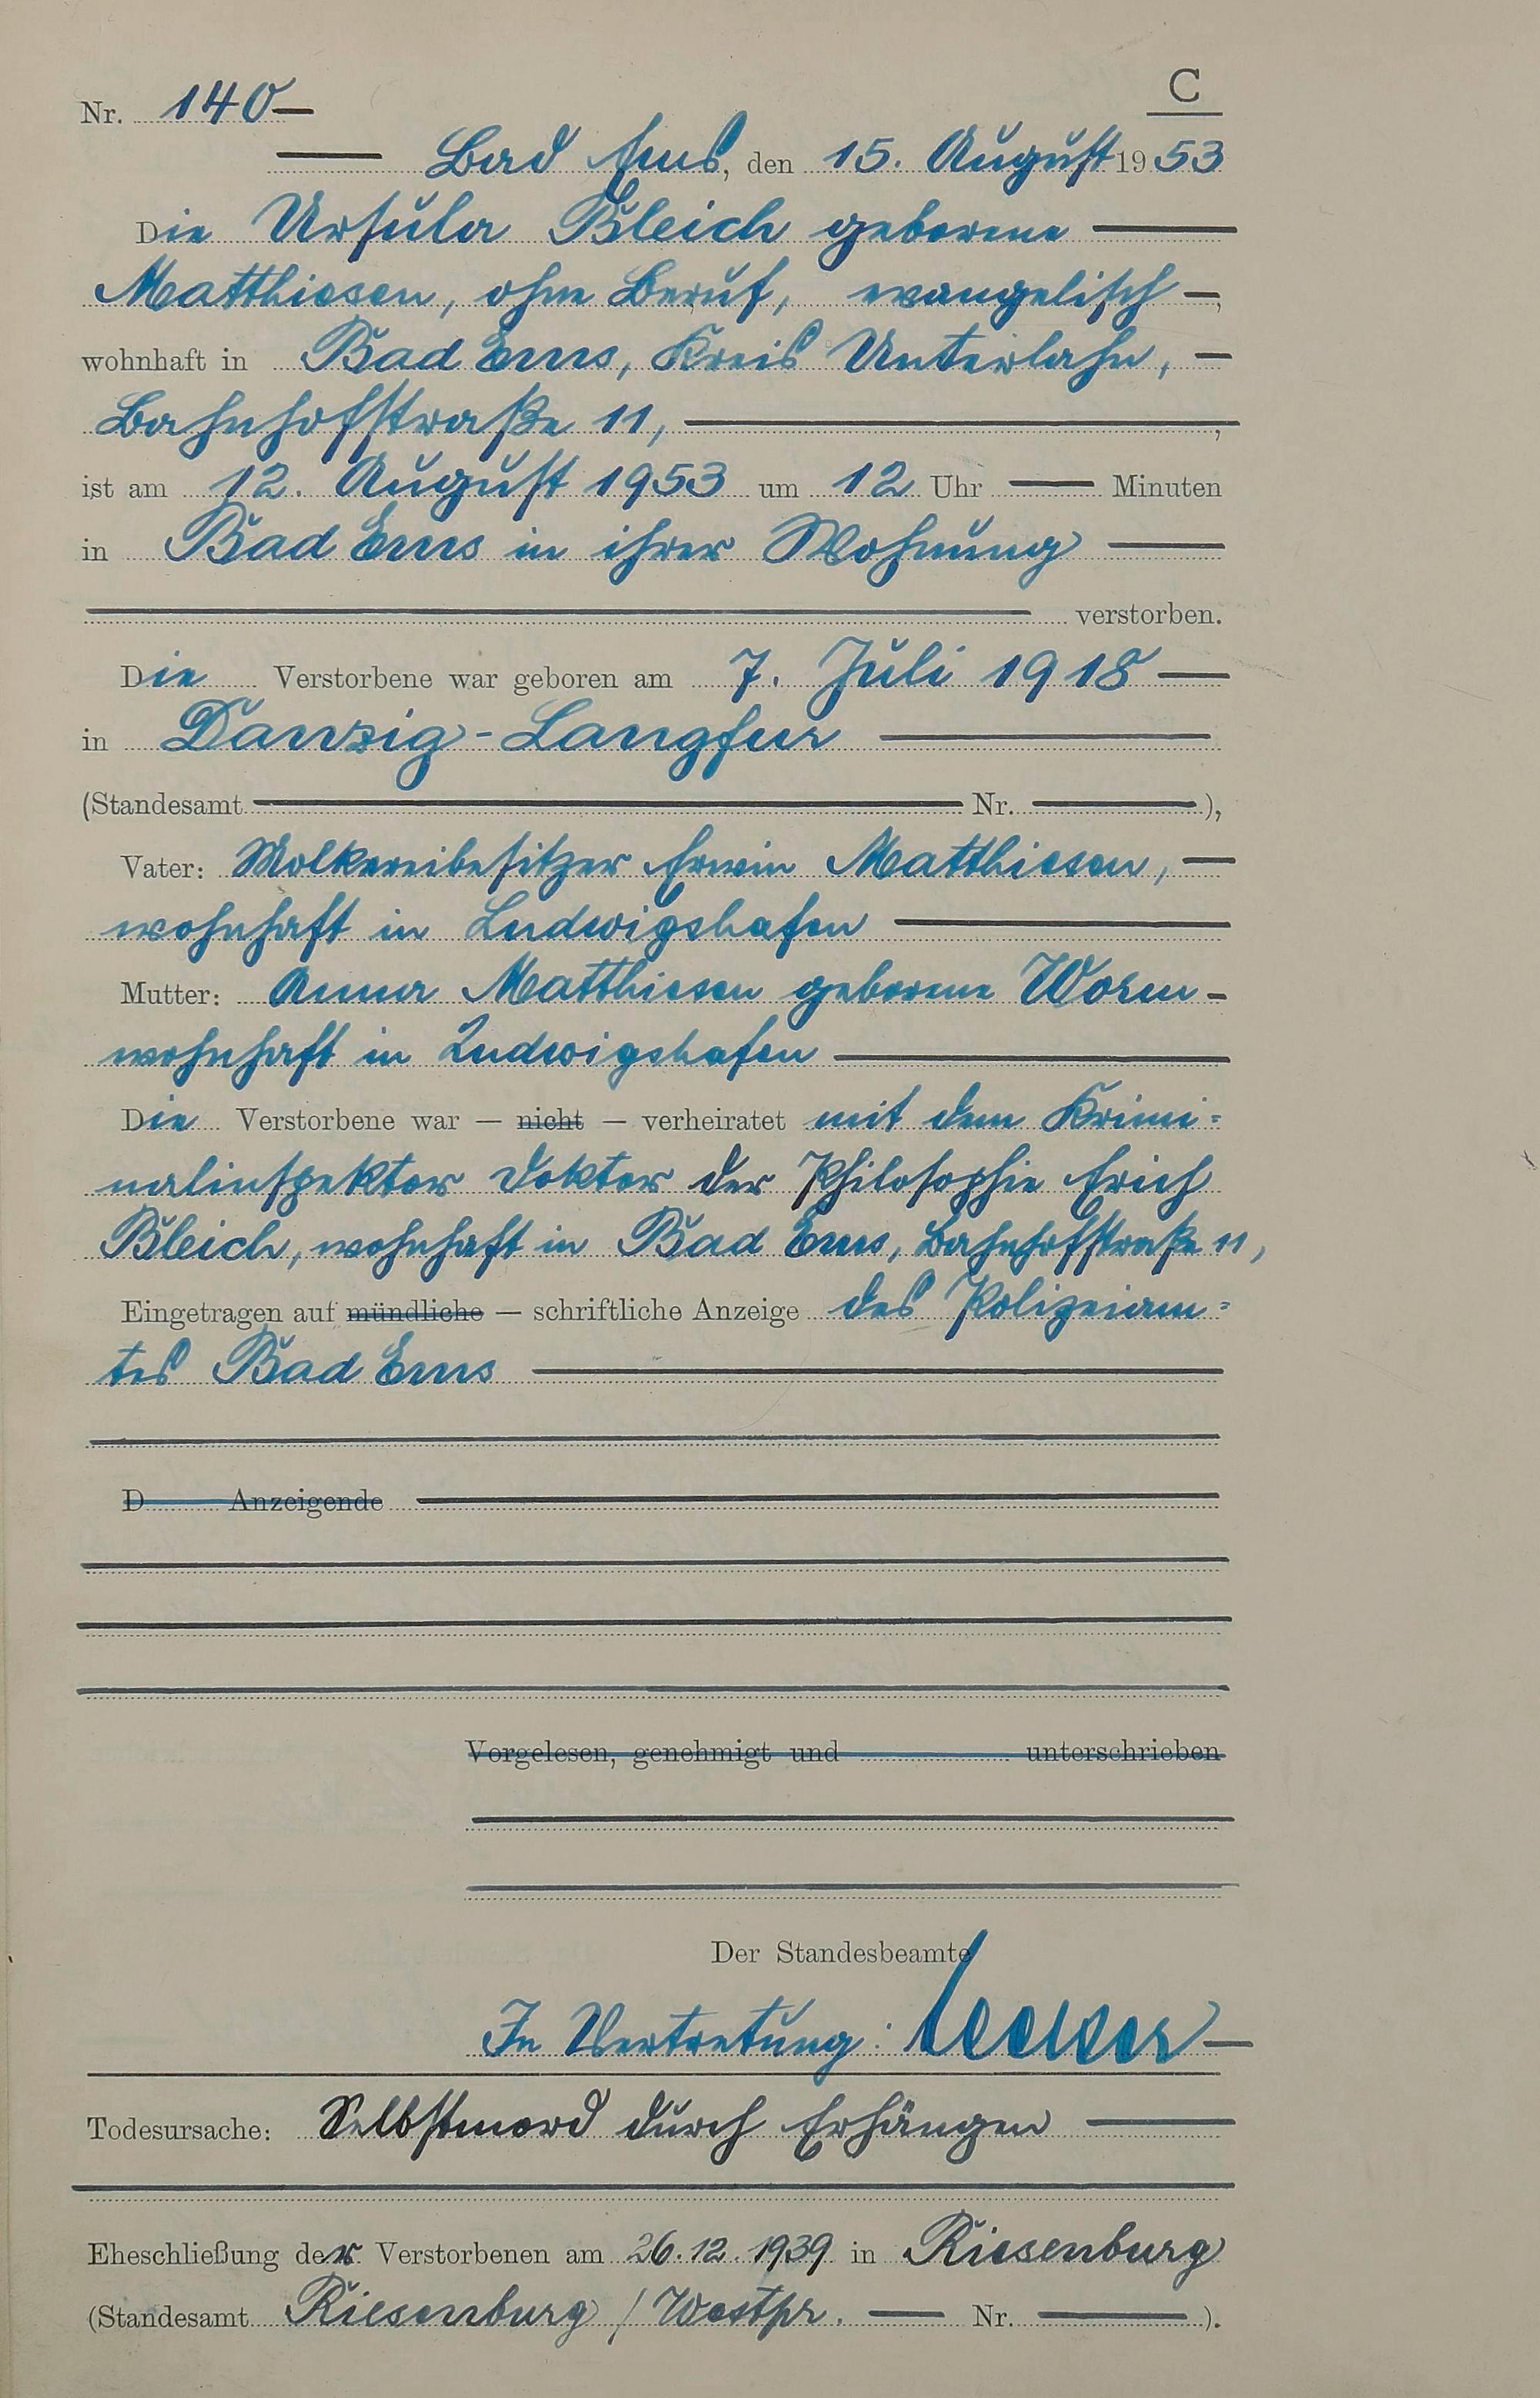 C
Nr. 140
Bad Ems, den 15. August 1953
Die Ursula Bleich geborene
Matthiesen, ohne Beruf, evangelisch,
wohnhaft in Bad Ems, Kreis Unterlahn,
Bahnhofstraße 11,
ist am 12. August 1953 um 12 Uhr — Minuten
in Bad Ems in ihrer Wohnung
verstorben.
Die Verstorbene war geboren am 7. Juli 1918
in Danzig-Langfur
(Standesamt — Nr. —),
Vater: Molkereibesitzer Erwin Matthiesen,
wohnhaft in Ludwigshafen
Mutter: Anna Matthiesen geborene Worm
wohnhaft in Ludwigshafen
Die Verstorbene war — nicht — verheiratet mit dem Krimi=
nalinspektor Doktor der Philosophie Erich
Bleich, wohnhaft in Bad Ems, Bahnhofstraße 11,
Eingetragen auf mündliche — schriftliche Anzeige des Polizeiam=
tes Bad Ems
D Anzeigende
Vorgelesen, genehmigt und unterschrieben
Der Standesbeamte
In Vertretung:
Todesursache: Selbstmord durch Erhängen
Eheschließung der Verstorbenen am 26.12.1939 in Riesenburg
(Standesamt Riesenburg / Westpr. — Nr. —).